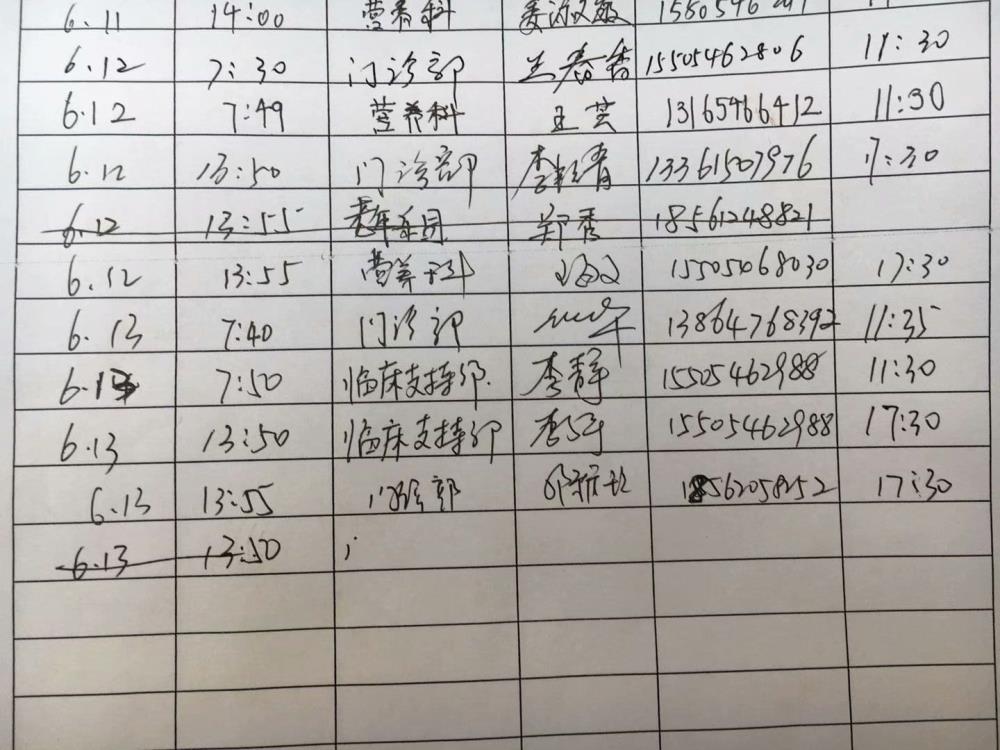 6.11 14:00 营养科
6.12 7:30 门诊部 15505462806 11:30
6.12 7:49 营养科 王芸 13165466412 11:30
6.12 13:50 门诊部 李 青 13361507976 17:30
6.12 13:55 郑秀 18561248821
6.12 13:55 营养科 15505068030 17:30
6.13 7:40 门诊部 13864768392 11:35
6.13 7:50 临床支持部 李静 15505462988 11:30
6.13 13:50 临床支持部 李静 15505462988 17:30
6.13 13:55 门诊部 18562058252 17:30
6.13 13:50